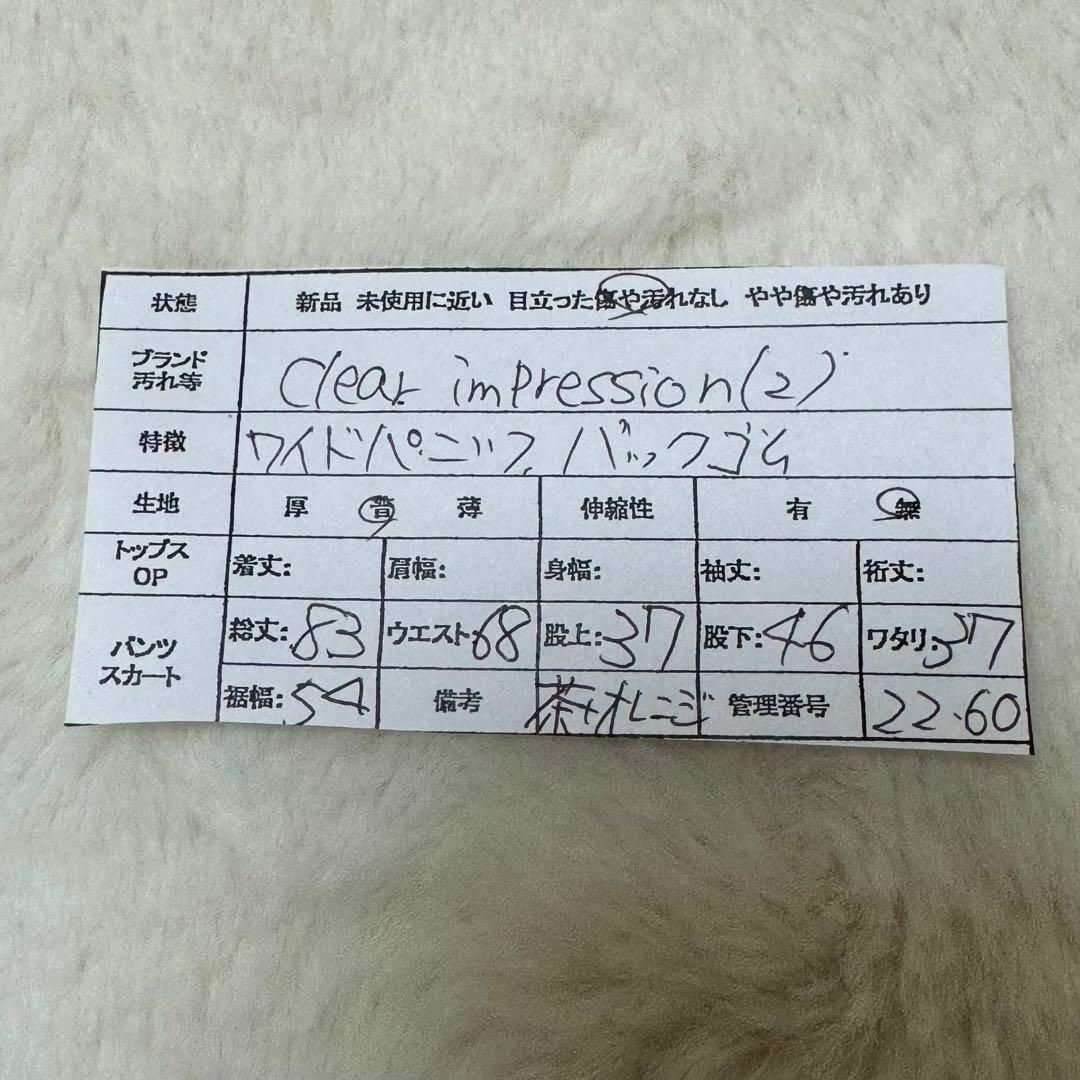 状態 新品 未使用に近い 目立った傷や汚れなし やや傷や汚れあり
ブランド
汚れ等 Clear impression(2)
特徴 ワイドパンツ、バックゴム
生地 厚 普 薄 伸縮性 有 無
トップス
OP 着丈: 肩幅: 身幅: 袖丈: 裄丈:
パンツ
スカート 総丈:83 ウエスト:68 股上:37 股下:46 ワタリ:37
裾幅:54 備考 茶+オレンジ 管理番号 22.60